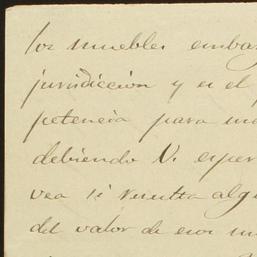 los muebles embar
jurisdiccion y si el
petencia para
debiendo V. esper
vea si resulta algu
del valor de esos mu